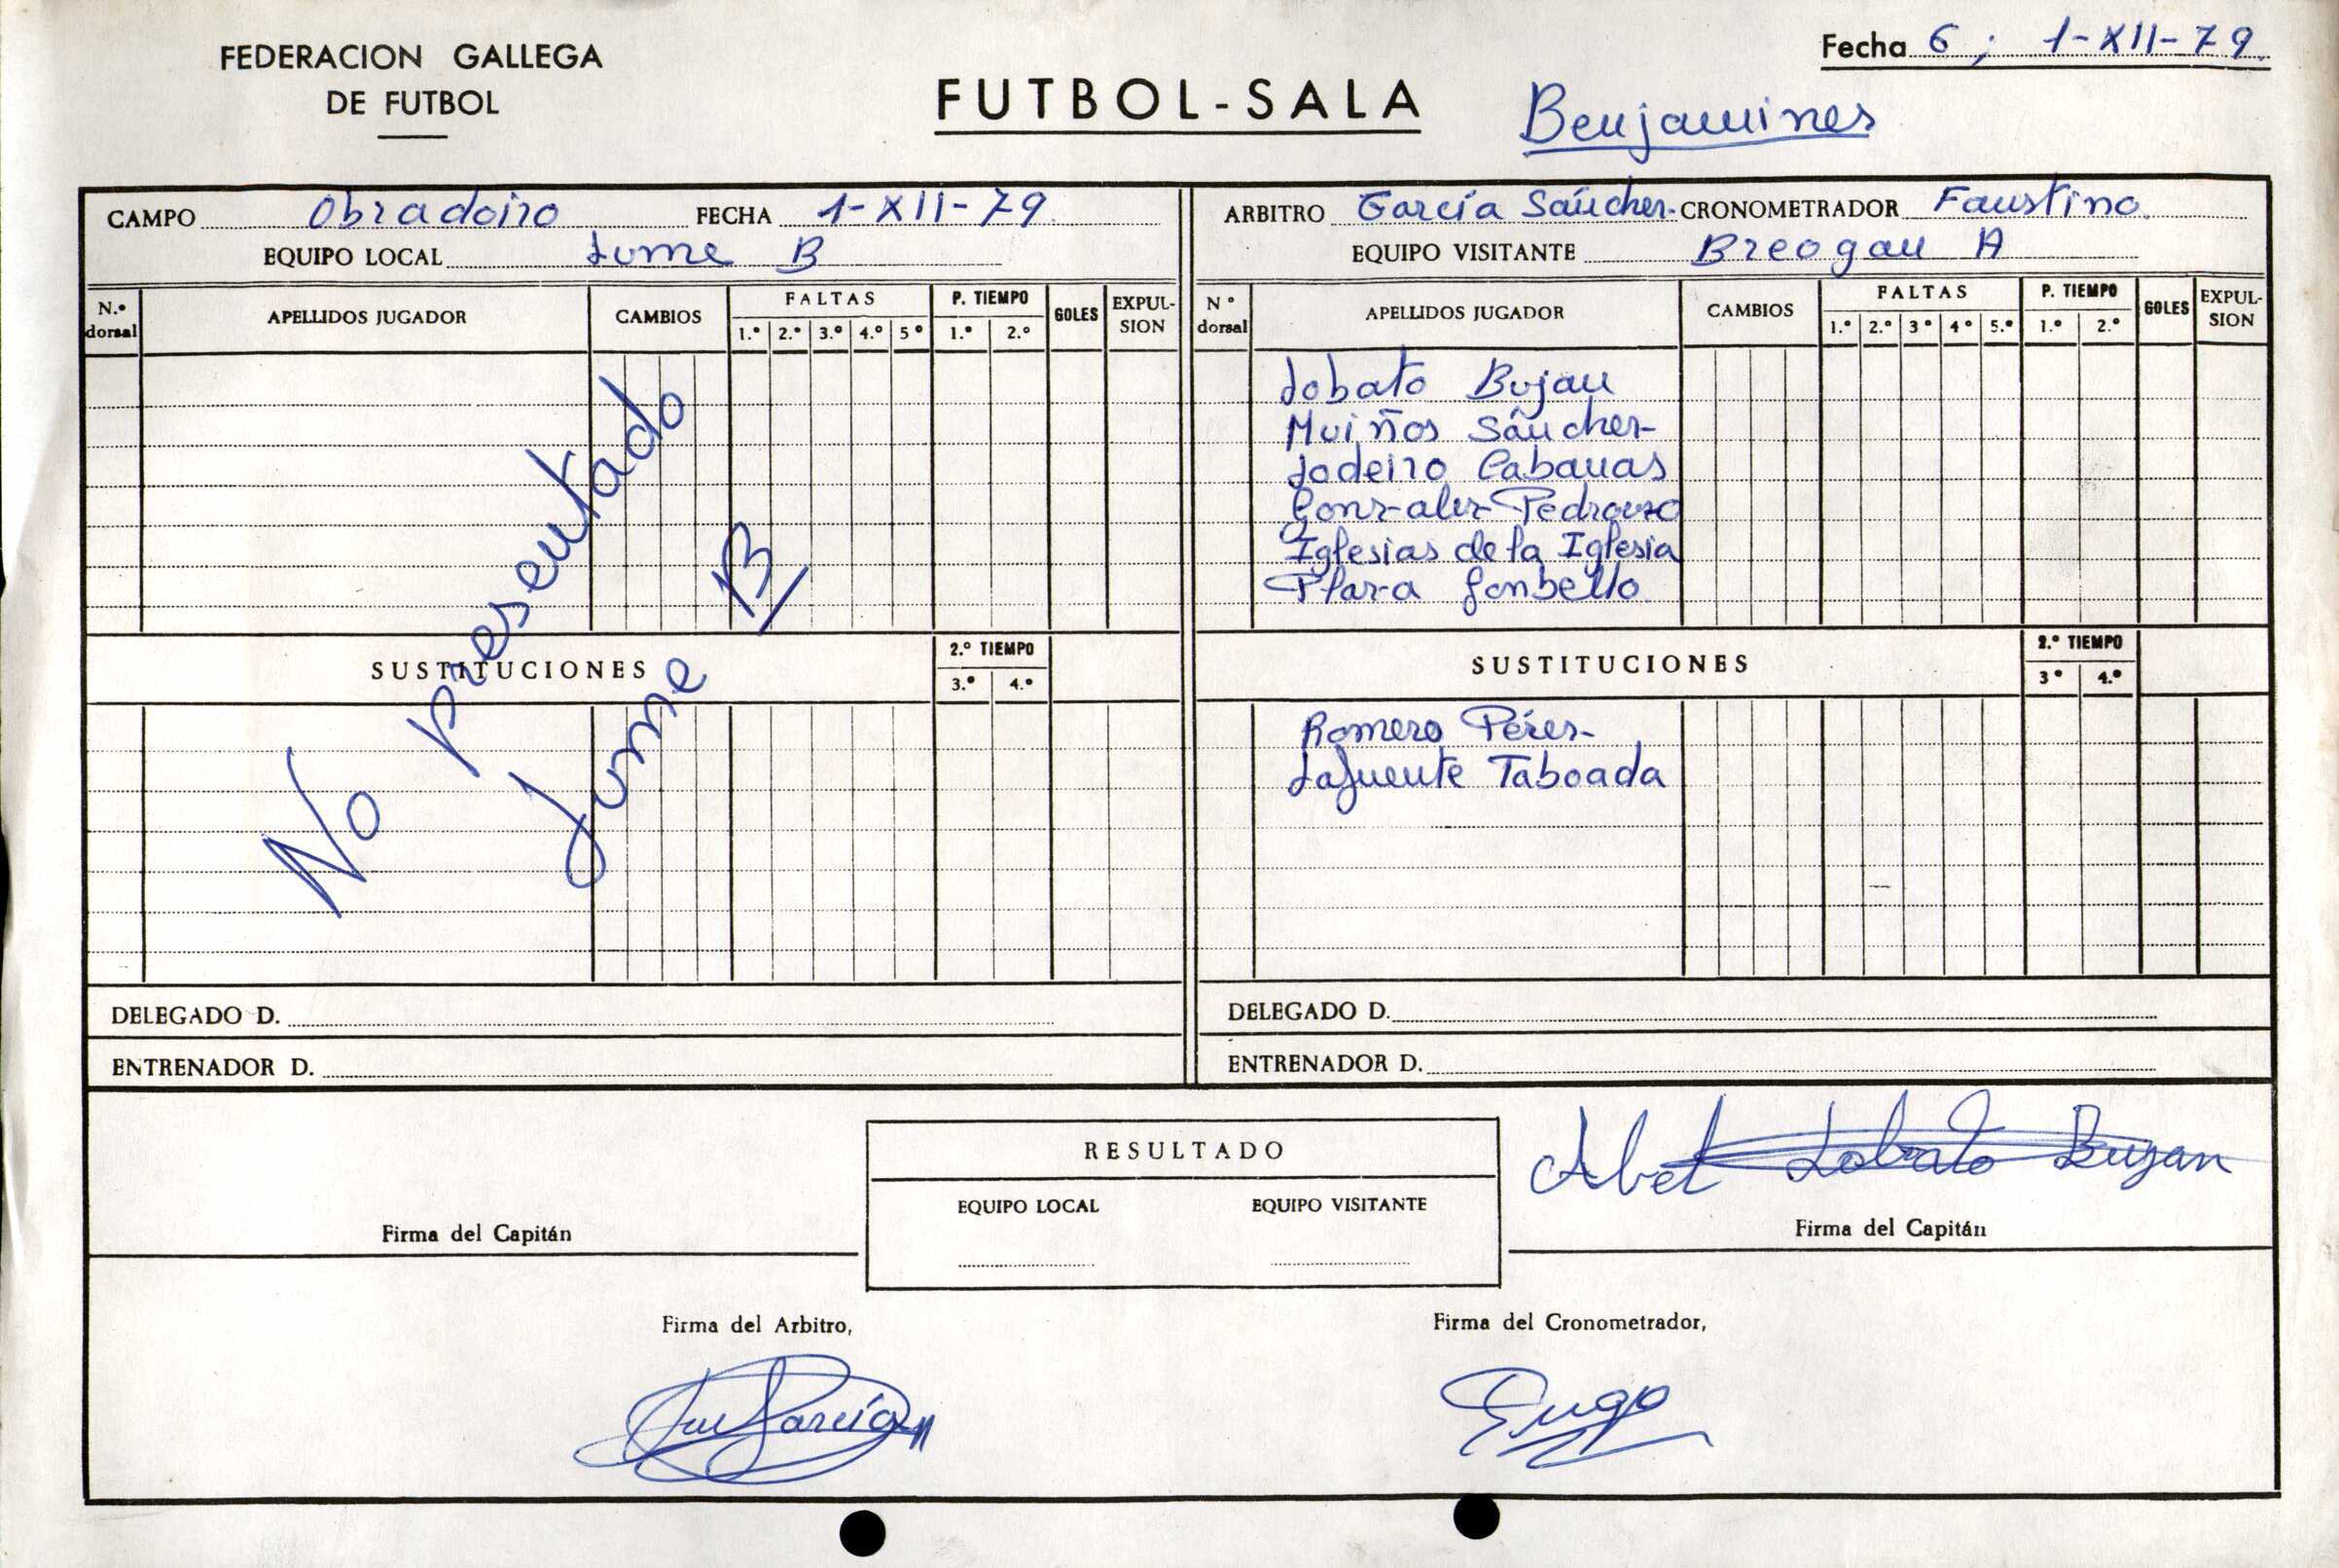 FEDERACION GALLEGA
DE FUTBOL
FUTBOL-SALA
Fecha 6; 1-XII-79
Benjamines
CAMPO Obradoiro FECHA 1-XII-79
EQUIPO LOCAL Lume B
N.º dorsal APELLIDOS JUGADOR CAMBIOS FALTAS 1.º 2.º 3.º 4.º 5º P. TIEMPO 1.º 2.º GOLES EXPULSION
No presentado
Lume B
SUSTITUCIONES 2.º TIEMPO 3.º 4.º
DELEGADO D.
ENTRENADOR D.
ARBITRO García Sánchez CRONOMETRADOR Faustino
EQUIPO VISITANTE Breogan A
Nº dorsal APELLIDOS JUGADOR CAMBIOS FALTAS 1.º 2.º 3º 4º 5.º P. TIEMPO 1.º 2.º GOLES EXPULSION
Lobato Bujan
Muiños Sánchez
Lodeiro Cabanas
Gonzalez Pedrouzo
Iglesias de la Iglesia
Plaza Gonbello
SUSTITUCIONES 2.º TIEMPO 3º 4.º
Romero Pérez
Lafuente Taboada
DELEGADO D.
ENTRENADOR D.
Firma del Capitán
RESULTADO
EQUIPO LOCAL EQUIPO VISITANTE
Abel Lobato Bujan
Firma del Capitán
Firma del Arbitro,
García
Firma del Cronometrador,